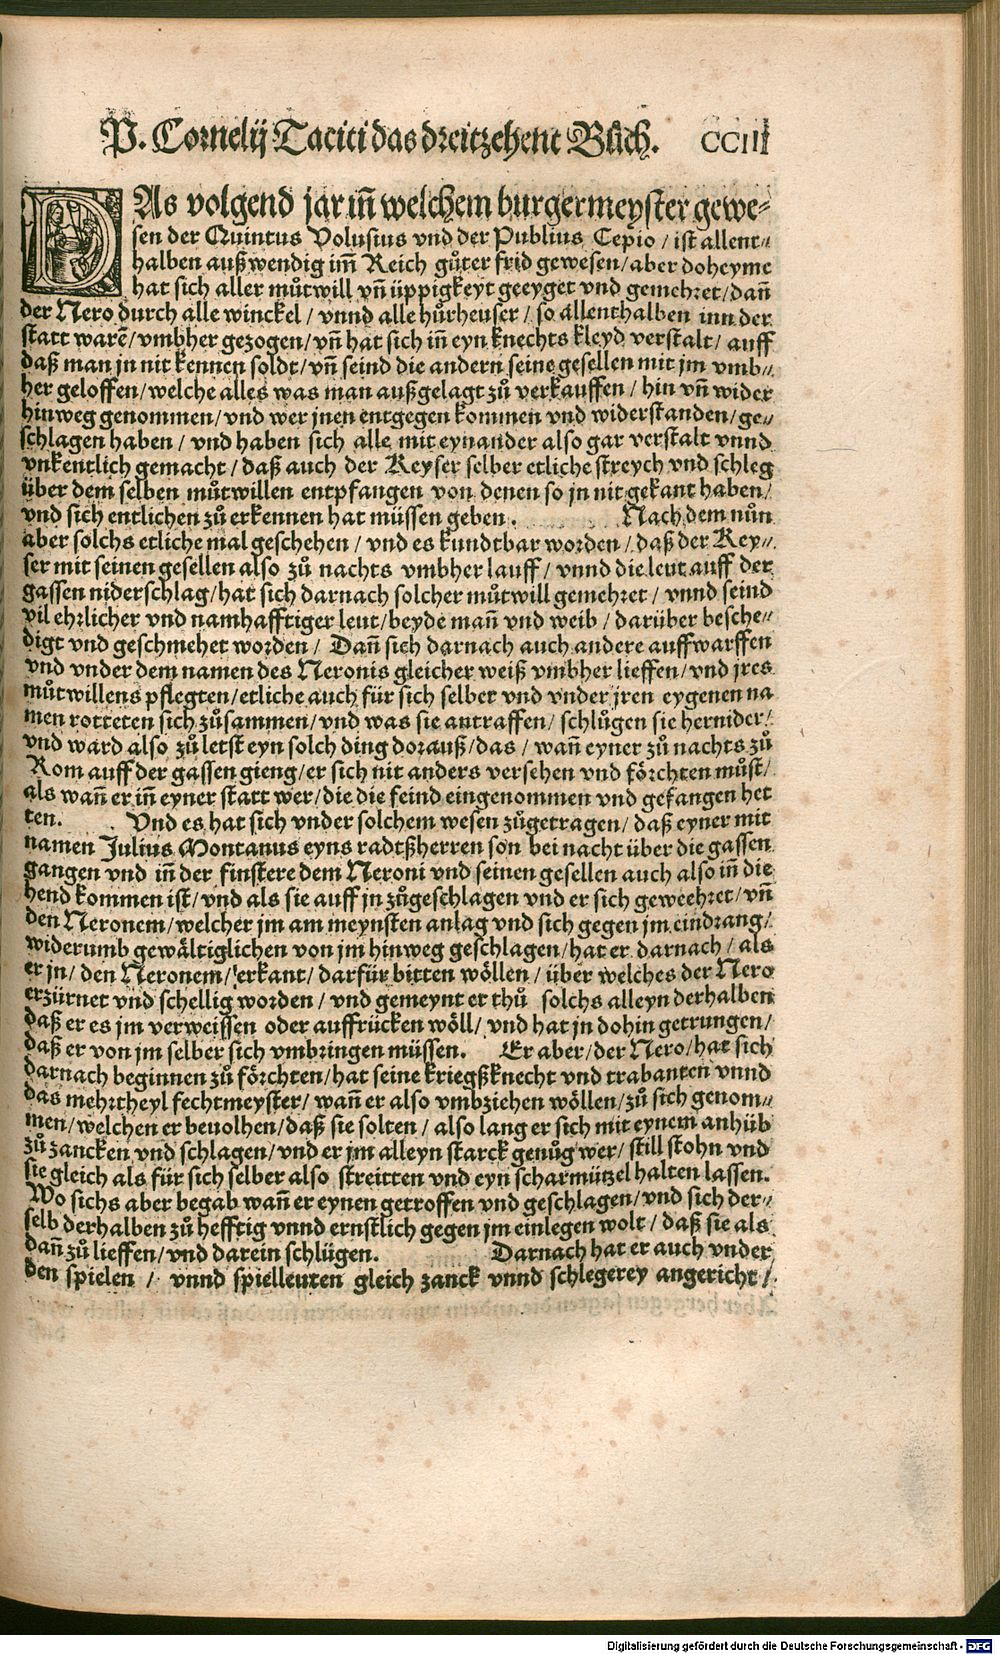 P. Cornelij Taciti das dreitzehent Bůch. CCIII
DAs volgend jar iñ welchem burgermeyster gewe-
sen der Quintus Volusius vnd der Publius Cepio / ist allent-
halben außwendig im̃ Reich gůter frid gewesen / aber doheyme
hat sich aller můtwill vñ üppigkeyt geeyget vnd gemehret / dañ
der Nero durch alle winckel / vnnd alle hůrheuser / so allenthalben inn der
statt warẽ / vmbher gezogen / vñ hat sich iñ eyn knechts kleyd verstalt / auff
daß man jn nit kennen soldt / vñ seind die andern seine gesellen mit jm vmb-
her geloffen / welche alles was man außgelagt zů verkauffen / hin vñ wider
hinweg genommen / vnd wer jnen entgegen kommen vnd widerstanden / ge-
schlagen haben / vnd haben sich alle mit eynander also gar verstalt vnnd
vnkentlich gemacht / daß auch der Keyser selber etliche streych vnd schleg
über dem selben můtwillen entpfangen von denen so jn nit gekant haben /
vnd sich entlichen zů erkennen hat müssen geben. Nach dem nůn
aber solchs etliche mal geschehen / vnd es kundtbar worden / daß der Key-
ser mit seinen gesellen also zů nachts vmbher lauff / vnnd die leut auff der
gassen niderschlag / hat sich darnach solcher můtwill gemehret / vnnd seind
vil ehrlicher vnd namhafftiger leut / beyde mañ vnd weib / darüber besche-
digt vnd geschmehet worden / Dañ sich darnach auch andere auffwarffen
vnd vnder dem namen des Neronis gleicher weiß vmbher lieffen / vnd jres
můtwillens pflegten / etliche auch für sich selber vnd vnder jren eygenen na
men rotteten sich zůsammen / vnd was sie antraffen / schlůgen sie hernider /
vnd ward also zů letst eyn solch ding dorauß / das / wañ eyner zů nachts zů
Rom auff der gassen gieng / er sich nit anders versehen vnd förchten můst /
als wañ er iñ eyner statt wer / die die feind eingenommen vnd gefangen het
ten. Vnd es hat sich vnder solchem wesen zůgetragen / daß eyner mit
namen Julius Montanus eyns radtßherren son bei nacht über die gassen
gangen vnd iñ der finstere dem Neroni vnd seinen gesellen auch also iñ die
hend kommen ist / vnd als sie auff jn zůgeschlagen vnd er sich geweehret / vñ
den Neronem / welcher jm am meynsten anlag vnd sich gegen jm eindrang /
widerumb gewältiglichen von jm hinweg geschlagen / hat er darnach / als
er jn / den Neronem / erkant / darfür bitten wöllen / über welches der Nero
erzürnet vnd schellig worden / vnd gemeynt er thů solchs alleyn derhalben
daß er es jm verweissen oder auffrücken wöll / vnd hat jn dohin getrungen /
daß er von jm selber sich vmbringen müssen. Er aber / der Nero / hat sich
darnach beginnen zů förchten / hat seine kriegßknecht vnd trabanten vnnd
das mehrtheyl fechtmeyster / wañ er also vmbziehen wöllen / zů sich genom-
men / welchen er beuolhen / daß sie solten / also lang er sich mit eynem anhüb
zů zancken vnd schlagen / vnd er jm alleyn starck genůg wer / still stohn vnd
sie gleich als für sich selber also streitten vnd eyn scharmützel halten lassen.
Wo sichs aber begab wañ er eynen getroffen vnd geschlagen / vnd sich der-
selb derhalben zů hefftig vnnd ernstlich gegen jm einlegen wolt / daß sie als
dañ zů lieffen / vnd darein schlügen. Darnach hat er auch vnder
den spielen / vnnd spielleuten gleich zanck vnnd schlegerey angericht /
Digitalisierung gefördert durch die Deutsche Forschungsgemeinschaft - DFG